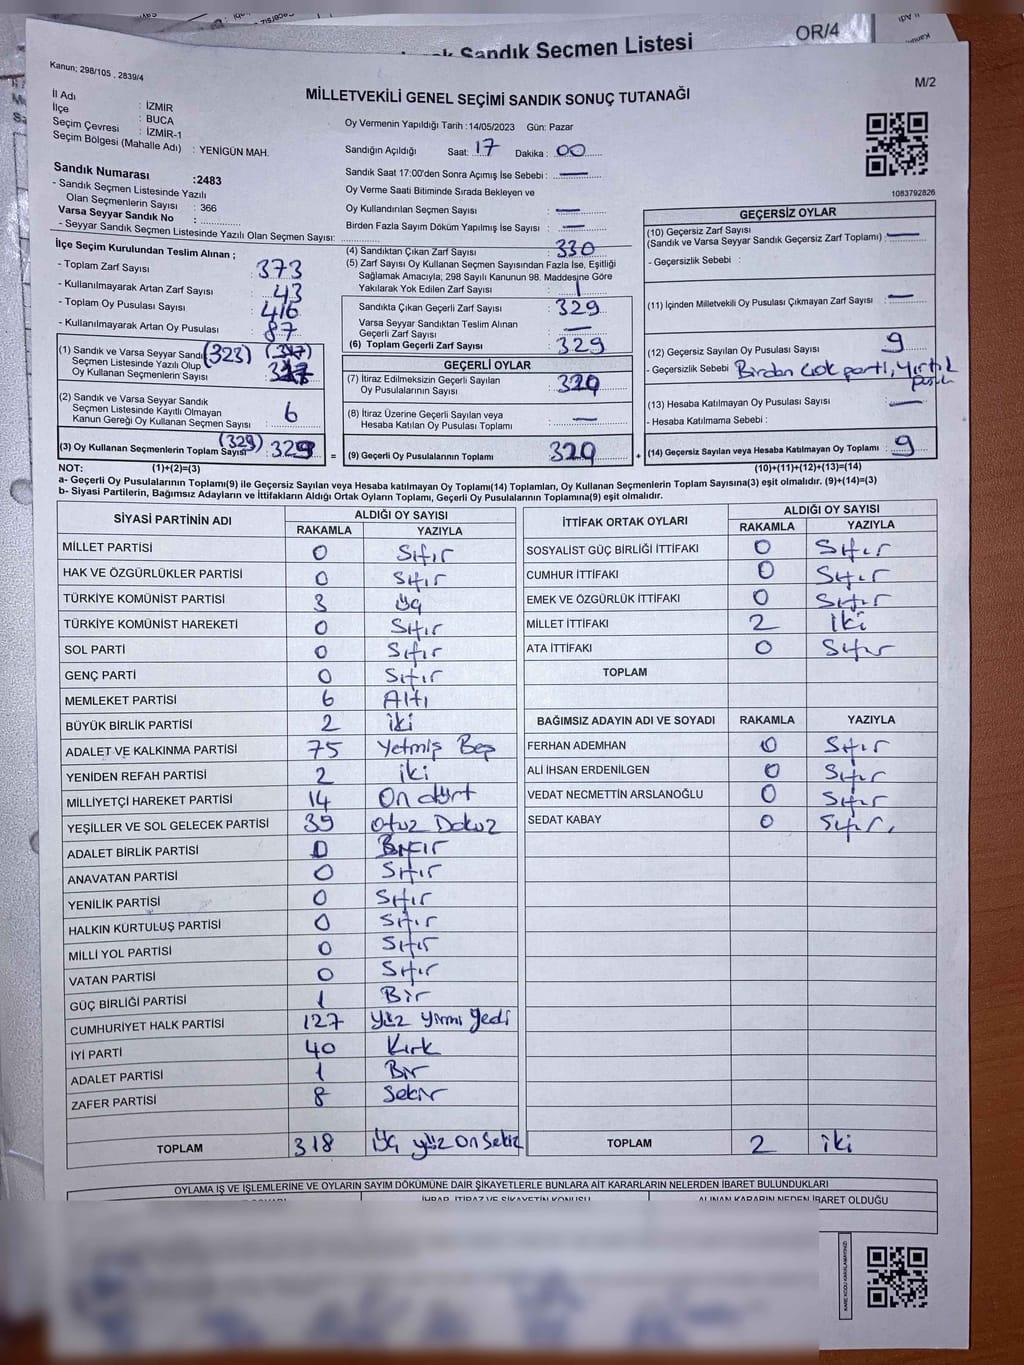 Sandık Seçmen Listesi
OR/4
Kanun; 298/105 , 2839/4
M/2
MİLLETVEKİLİ GENEL SEÇİMİ SANDIK SONUÇ TUTANAĞI
İl Adı : İZMİR
İlçe : BUCA
Seçim Çevresi : İZMİR-1
Seçim Bölgesi (Mahalle Adı) : YENİGÜN MAH.
Oy Vermenin Yapıldığı Tarih :14/05/2023 Gün: Pazar
Sandığın Açıldığı Saat: 17 Dakika : 00
Sandık Saat 17:00'den Sonra Açımış İse Sebebi : —
Oy Verme Saati Bitiminde Sırada Bekleyen ve
Oy Kullandırılan Seçmen Sayısı : —
Birden Fazla Sayım Döküm Yapılmış İse Sayısı : —
1083792826
Sandık Numarası :2483
- Sandık Seçmen Listesinde Yazılı
Olan Seçmenlerin Sayısı : 366
Varsa Seyyar Sandık No :
- Seyyar Sandık Seçmen Listesinde Yazılı Olan Seçmen Sayısı:
İlçe Seçim Kurulundan Teslim Alınan ;
- Toplam Zarf Sayısı : 373
- Kullanılmayarak Artan Zarf Sayısı : 43
- Toplam Oy Pusulası Sayısı : 416
- Kullanılmayarak Artan Oy Pusulası : 87
(1) Sandık ve Varsa Seyyar Sandı (323)
Seçmen Listesinde Yazılı Olup
Oy Kullanan Seçmenlerin Sayısı :
(2) Sandık ve Varsa Seyyar Sandık
Seçmen Listesinde Kayıtlı Olmayan
Kanun Gereği Oy Kullanan Seçmen Sayısı : 6
(3) Oy Kullanan Seçmenlerin Toplam Sayısı (329) : 329
(4) Sandıktan Çıkan Zarf Sayısı : 330
(5) Zarf Sayısı Oy Kullanan Seçmen Sayısından Fazla İse, Eşitliği
Sağlamak Amacıyla; 298 Sayılı Kanunun 98. Maddesine Göre
Yakılarak Yok Edilen Zarf Sayısı : 1
Sandıkta Çıkan Geçerli Zarf Sayısı : 329
Varsa Seyyar Sandıktan Teslim Alınan
Geçerli Zarf Sayısı : —
(6) Toplam Geçerli Zarf Sayısı : 329
GEÇERLİ OYLAR
(7) İtiraz Edilmeksizin Geçerli Sayılan
Oy Pusulalarının Sayısı : 320
(8) İtiraz Üzerine Geçerli Sayılan veya
Hesaba Katılan Oy Pusulası Toplamı : —
= (9) Geçerli Oy Pusulalarının Toplamı : 320 +
GEÇERSİZ OYLAR
(10) Geçersiz Zarf Sayısı
(Sandık ve Varsa Seyyar Sandık Geçersiz Zarf Toplamı) : —
- Geçersizlik Sebebi :
(11) İçinden Milletvekili Oy Pusulası Çıkmayan Zarf Sayısı : —
(12) Geçersiz Sayılan Oy Pusulası Sayısı : 9
- Geçersizlik Sebebi : Birden çok parti, yırtık
(13) Hesaba Katılmayan Oy Pusulası Sayısı : —
- Hesaba Katılmama Sebebi :
(14) Geçersiz Sayılan veya Hesaba Katılmayan Oy Toplamı : 9
NOT: (1)+(2)=(3) (10)+(11)+(12)+(13)=(14)
a- Geçerli Oy Pusulalarının Toplamı(9) ile Geçersiz Sayılan veya Hesaba katılmayan Oy Toplamı(14) Toplamları, Oy Kullanan Seçmenlerin Toplam Sayısına(3) eşit olmalıdır. (9)+(14)=(3)
b- Siyasi Partilerin, Bağımsız Adayların ve İttifakların Aldığı Ortak Oyların Toplamı, Geçerli Oy Pusulalarının Toplamına(9) eşit olmalıdır.
SİYASİ PARTİNİN ADI ALDIĞI OY SAYISI
RAKAMLA YAZIYLA
MİLLET PARTİSİ 0 Sıfır
HAK VE ÖZGÜRLÜKLER PARTİSİ 0 Sıfır
TÜRKİYE KOMÜNİST PARTİSİ 3 üç
TÜRKİYE KOMÜNİST HAREKETİ 0 Sıfır
SOL PARTİ 0 Sıfır
GENÇ PARTİ 0 Sıfır
MEMLEKET PARTİSİ 6 Altı
BÜYÜK BİRLİK PARTİSİ 2 iki
ADALET VE KALKINMA PARTİSİ 75 Yetmiş Beş
YENİDEN REFAH PARTİSİ 2 iki
MİLLİYETÇİ HAREKET PARTİSİ 14 On dört
YEŞİLLER VE SOL GELECEK PARTİSİ 39 Otuz Dokuz
ADALET BİRLİK PARTİSİ 0
ANAVATAN PARTİSİ 0 Sıfır
YENİLİK PARTİSİ 0 Sıfır
HALKIN KURTULUŞ PARTİSİ 0 Sıfır
MİLLİ YOL PARTİSİ 0 Sıfır
VATAN PARTİSİ 0 Sıfır
GÜÇ BİRLİĞİ PARTİSİ 1 Bir
CUMHURİYET HALK PARTİSİ 127 Yüz Yirmi Yedi
İYİ PARTİ 40 Kırk
ADALET PARTİSİ 1 Bir
ZAFER PARTİSİ 8 Sekiz
TOPLAM 318 Üç yüz On Sekiz
İTTİFAK ORTAK OYLARI ALDIĞI OY SAYISI
RAKAMLA YAZIYLA
SOSYALİST GÜÇ BİRLİĞİ İTTİFAKI 0 Sıfır
CUMHUR İTTİFAKI 0 Sıfır
EMEK VE ÖZGÜRLÜK İTTİFAKI 0 Sıfır
MİLLET İTTİFAKI 2 iki
ATA İTTİFAKI 0 Sıfır
TOPLAM
BAĞIMSIZ ADAYIN ADI VE SOYADI RAKAMLA YAZIYLA
FERHAN ADEMHAN 0 Sıfır
ALİ İHSAN ERDENİLGEN 0 Sıfır
VEDAT NECMETTİN ARSLANOĞLU 0 Sıfır
SEDAT KABAY 0 Sıfır
TOPLAM 2 iki
OYLAMA İŞ VE İŞLEMLERİNE VE OYLARIN SAYIM DÖKÜMÜNE DAİR ŞİKAYETLERLE BUNLARA AİT KARARLARIN NELERDEN İBARET BULUNDUKLARI
İHBAR, İTİRAZ VE ŞİKAYETİN KONUSU ALINAN KARARIN NEDEN İBARET OLDUĞU